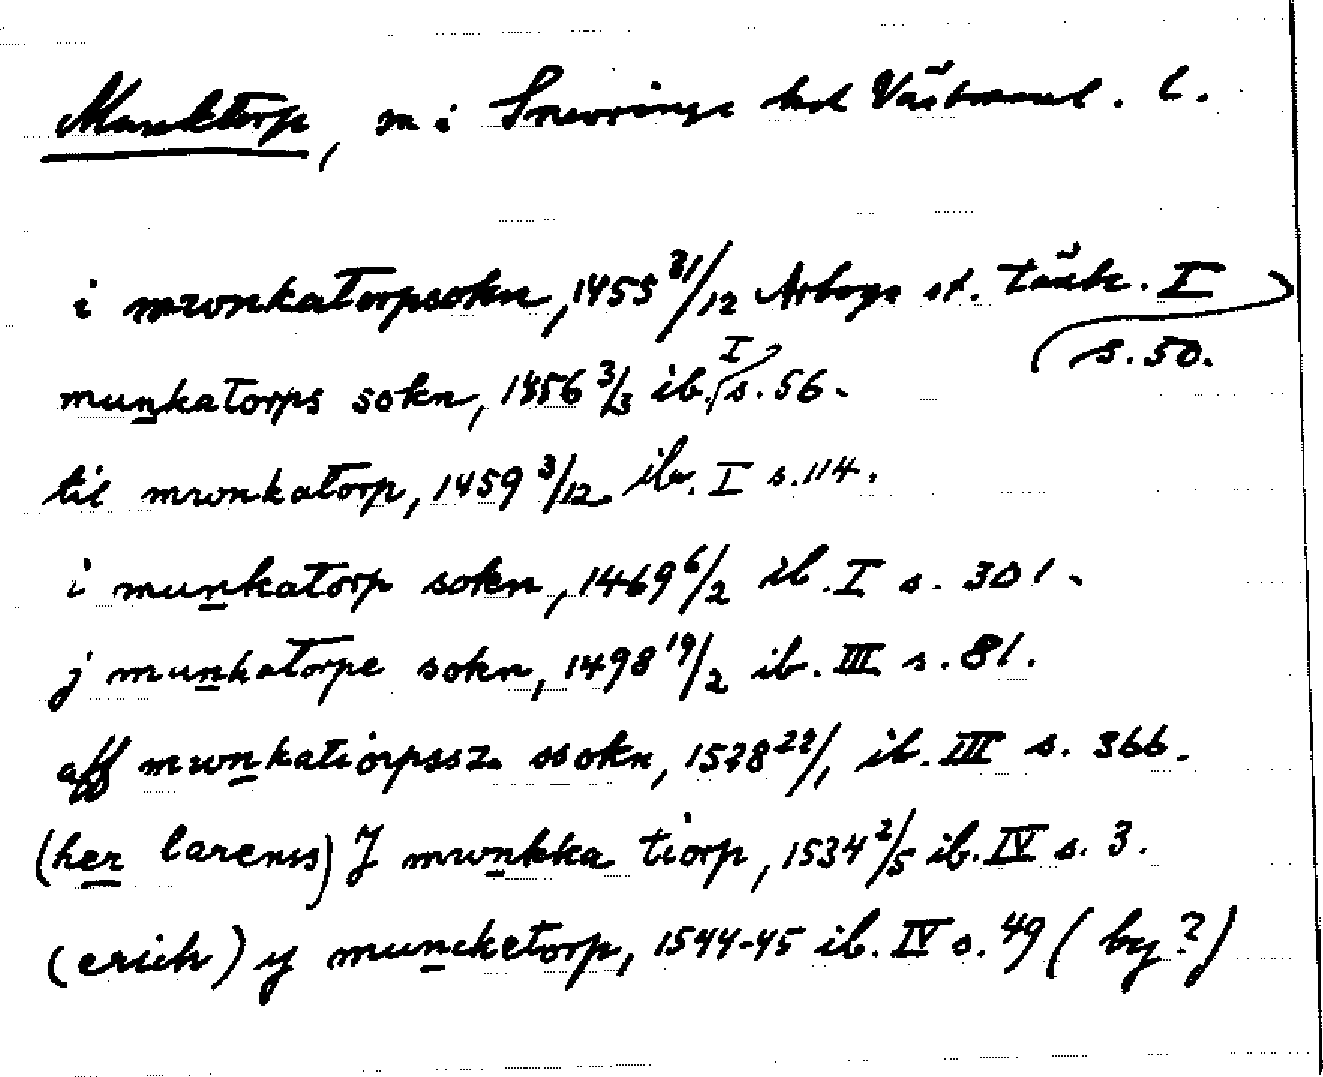 Munktorp, sn i Snevringe hd Västmanl. l.
i mwnkatorpsokn, 1455 21/12 Arboga st. tänkb. I
s. 50.
munkatorps sokn, 1456 3/3 ib. I s. 56.
til mwnkatorp, 1459 3/12 ib. I s. 114.
i munkatorp sokn, 1469 6/2 ib. I s. 301.
j munkatorpe sokn, 1498 19/2 ib. III s. 81.
aff mwnkatiorpssz ssokn, 1528 22/1 ib. III s. 366.
(her larenss) J mwnkka tiorp, 1534 2/5 ib. IV s. 3.
(erich) y muncketorp, 1544-45 ib. IV s. 49 (by?)